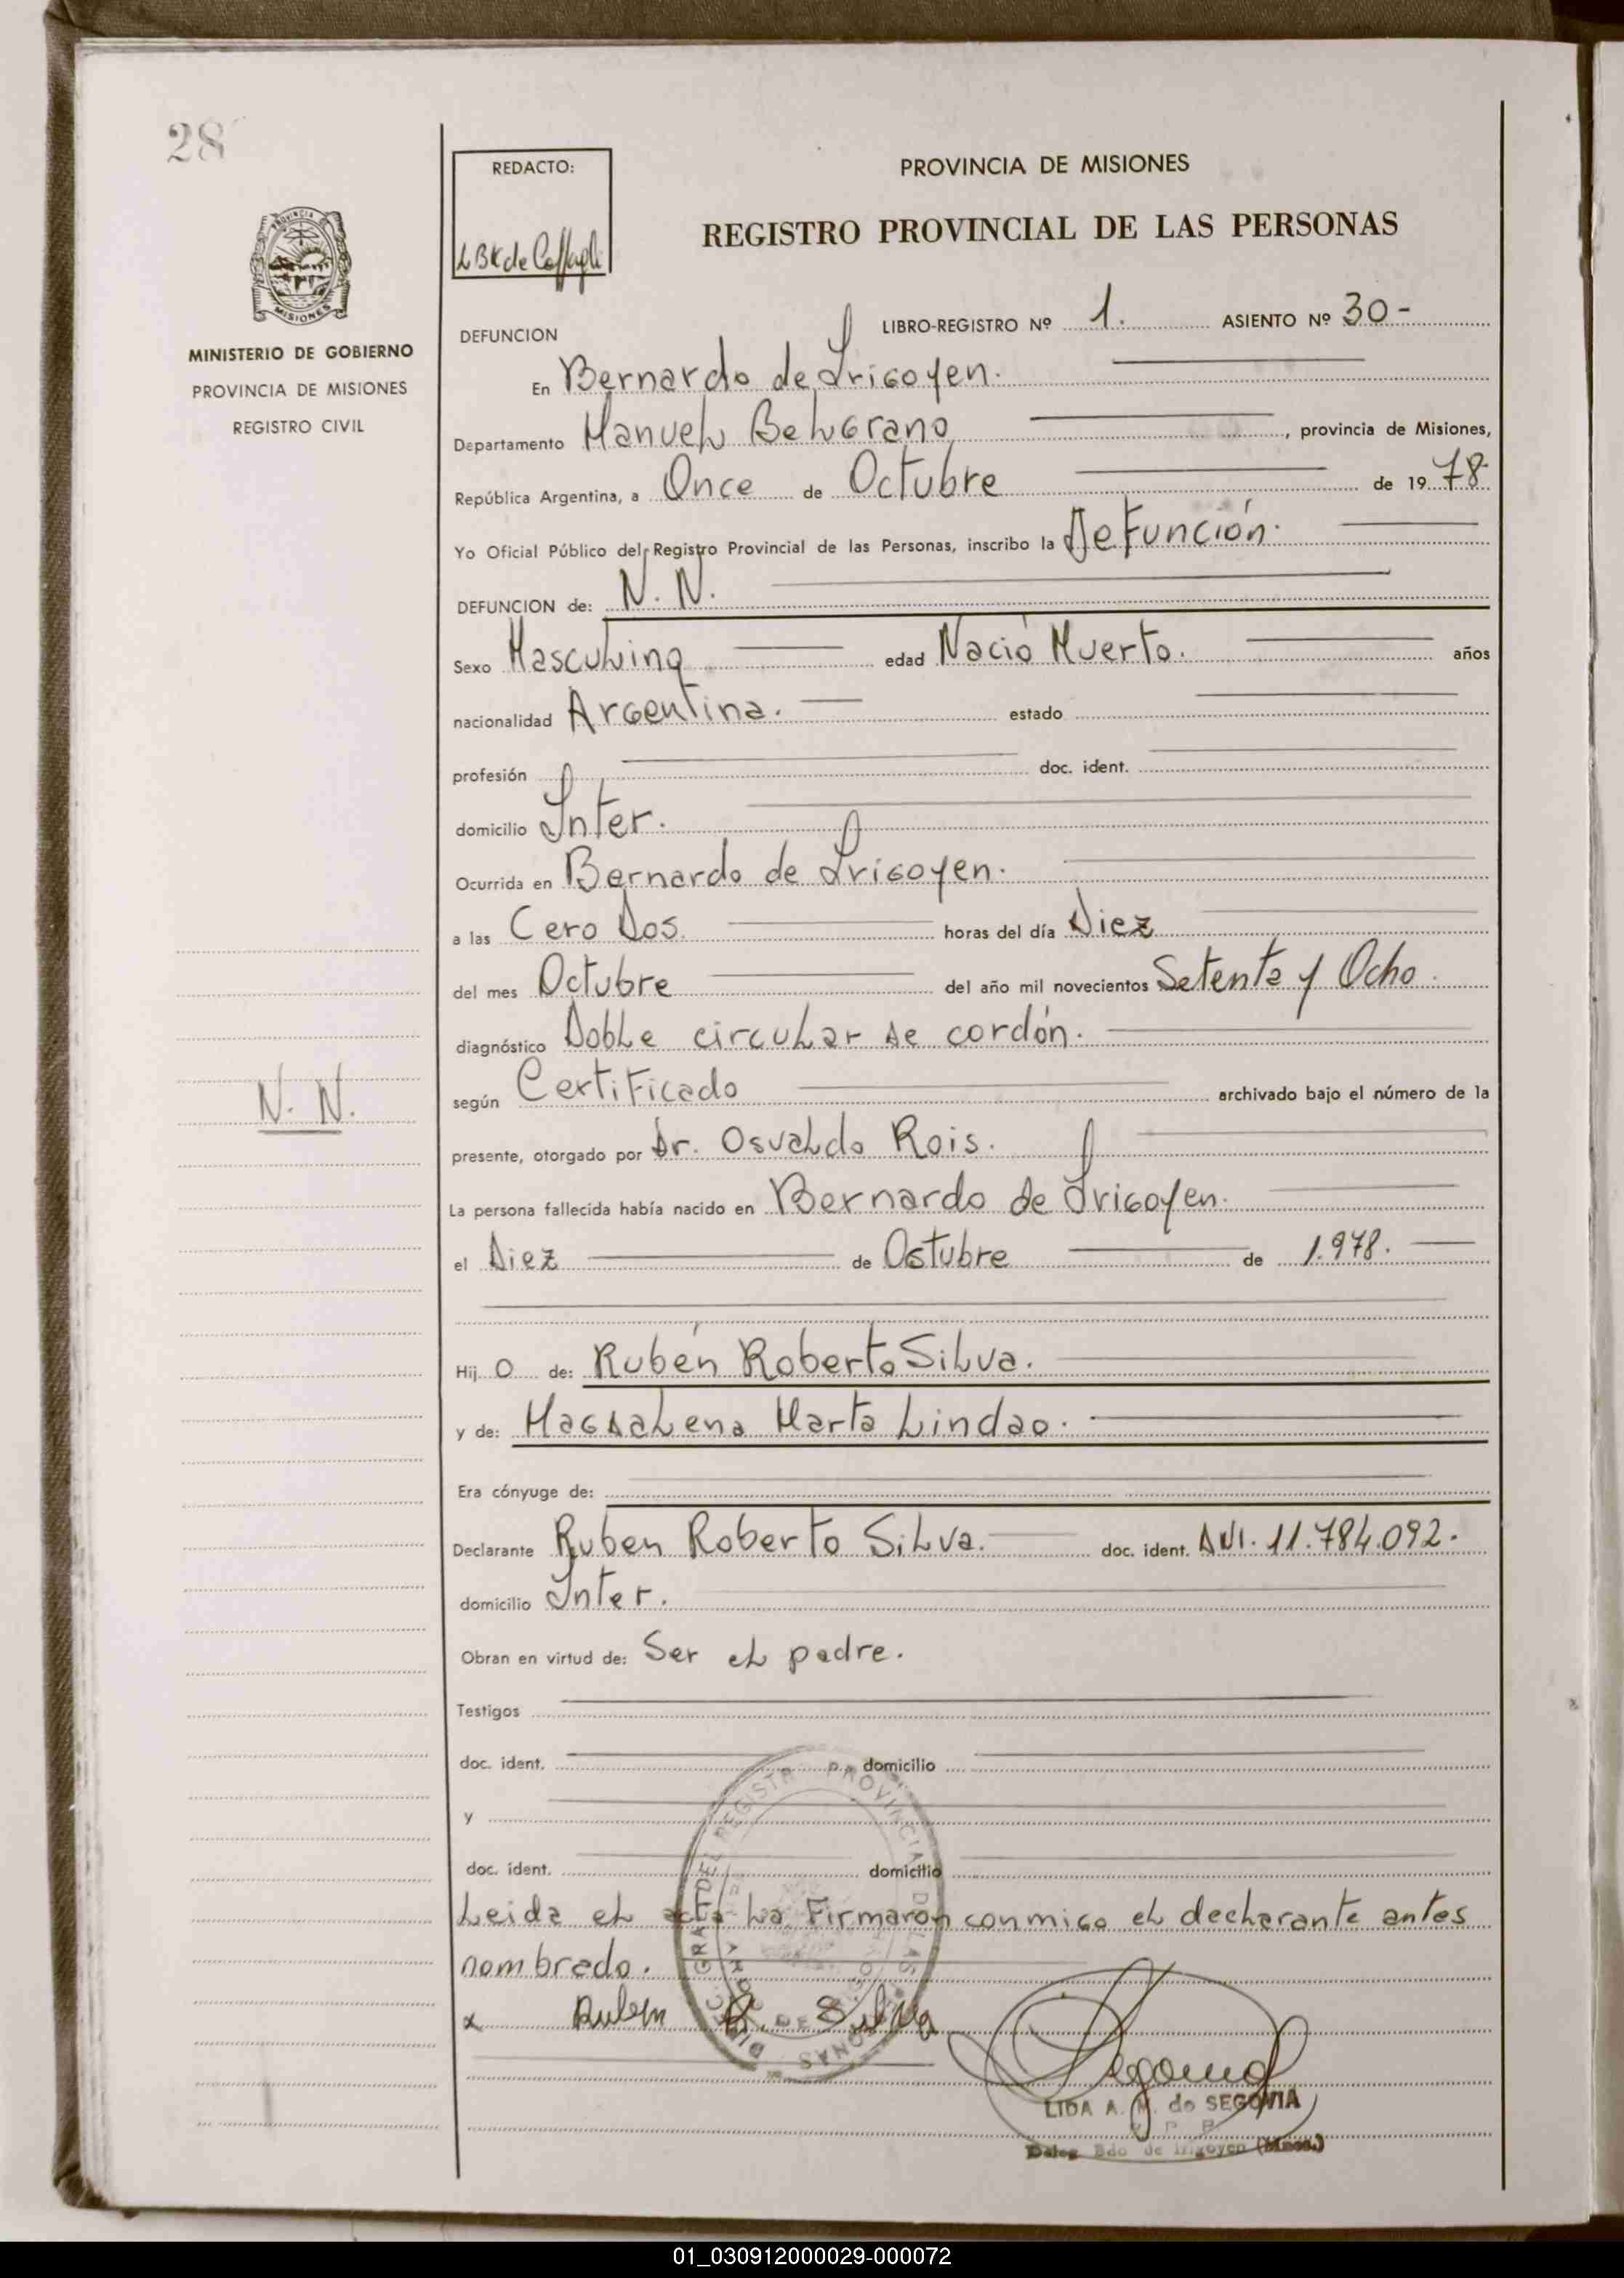 28
REDACTO:
PROVINCIA DE MISIONES
REGISTRO PROVINCIAL DE LAS PERSONAS
MINISTERIO DE GOBIERNO
PROVINCIA DE MISIONES
REGISTRO CIVIL
DEFUNCION LIBRO-REGISTRO Nº 1. ASIENTO Nº 30-
En Bernardo de Irigoyen.
Departamento Manuel Belgrano, provincia de Misiones,
República Argentina, a Once de Octubre de 1978
Yo Oficial Público del Registro Provincial de las Personas, inscribo la Defunción.
DEFUNCION de: N. N.
Sexo Masculino edad Nació Muerto. años
nacionalidad Argentina. estado
profesión doc. ident.
domicilio Inter.
Ocurrida en Bernardo de Irigoyen.
a las Cero Dos. horas del día Diez
del mes Octubre del año mil novecientos Setenta y Ocho.
diagnóstico Doble circular de cordón.
según Certificado archivado bajo el número de la
N. N.
presente, otorgado por Dr. Osvaldo Rois.
La persona fallecida había nacido en Bernardo de Irigoyen.
el Diez de Ostubre de 1.978.
Hijo de: Rubén Roberto Silva.
y de: Magdalena Marta Lindao.
Era cónyuge de:
Declarante Ruben Roberto Silva. doc. ident. DNI. 11.784.092.
domicilio Inter.
Obran en virtud de: Ser el padre.
Testigos
doc. ident. domicilio
y
doc. ident. domicilio
Leida el acta la Firmaron conmigo el declarante antes
nombrado.
x Ruben R. Silva
Segovia
LIDA A. M. de SEGOVIA
Deleg. Bdo de Irigoyen (Mnes.)
01_030912000029-000072